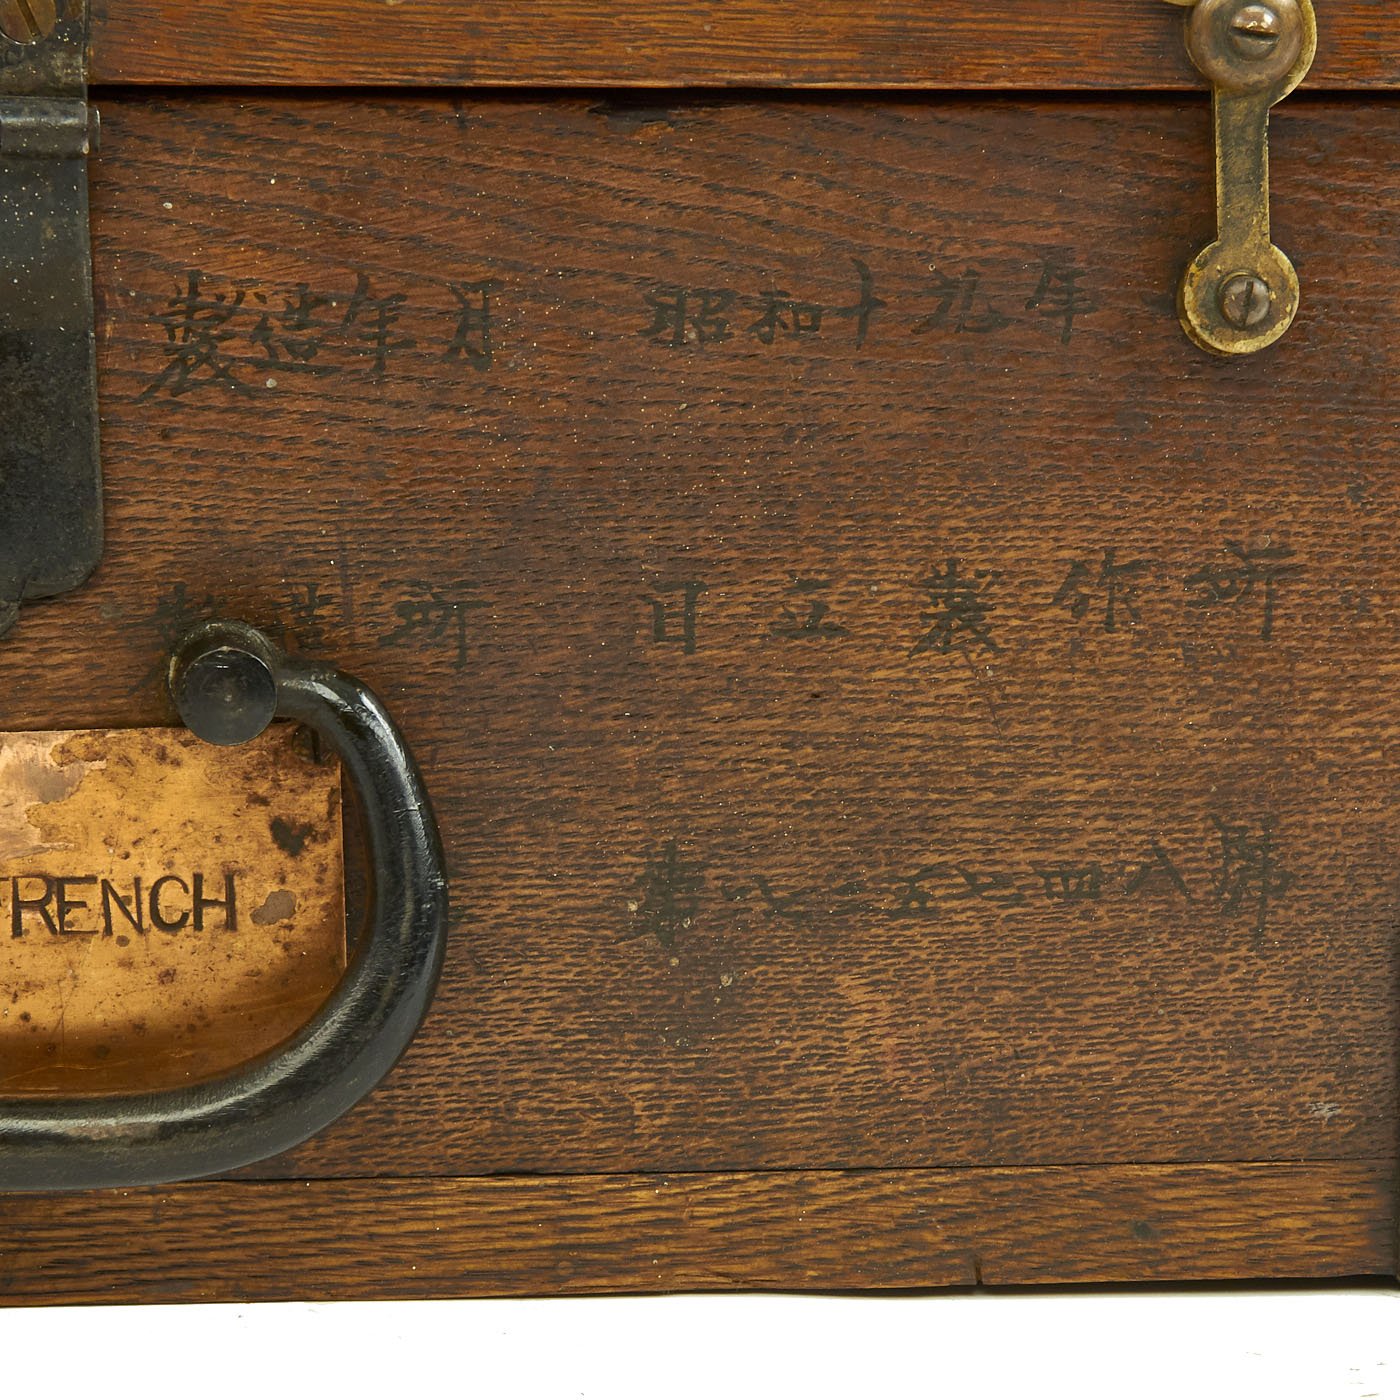 製造年月 昭和十九年
製造所 日立製作所
RENCH
第 一五七四八號